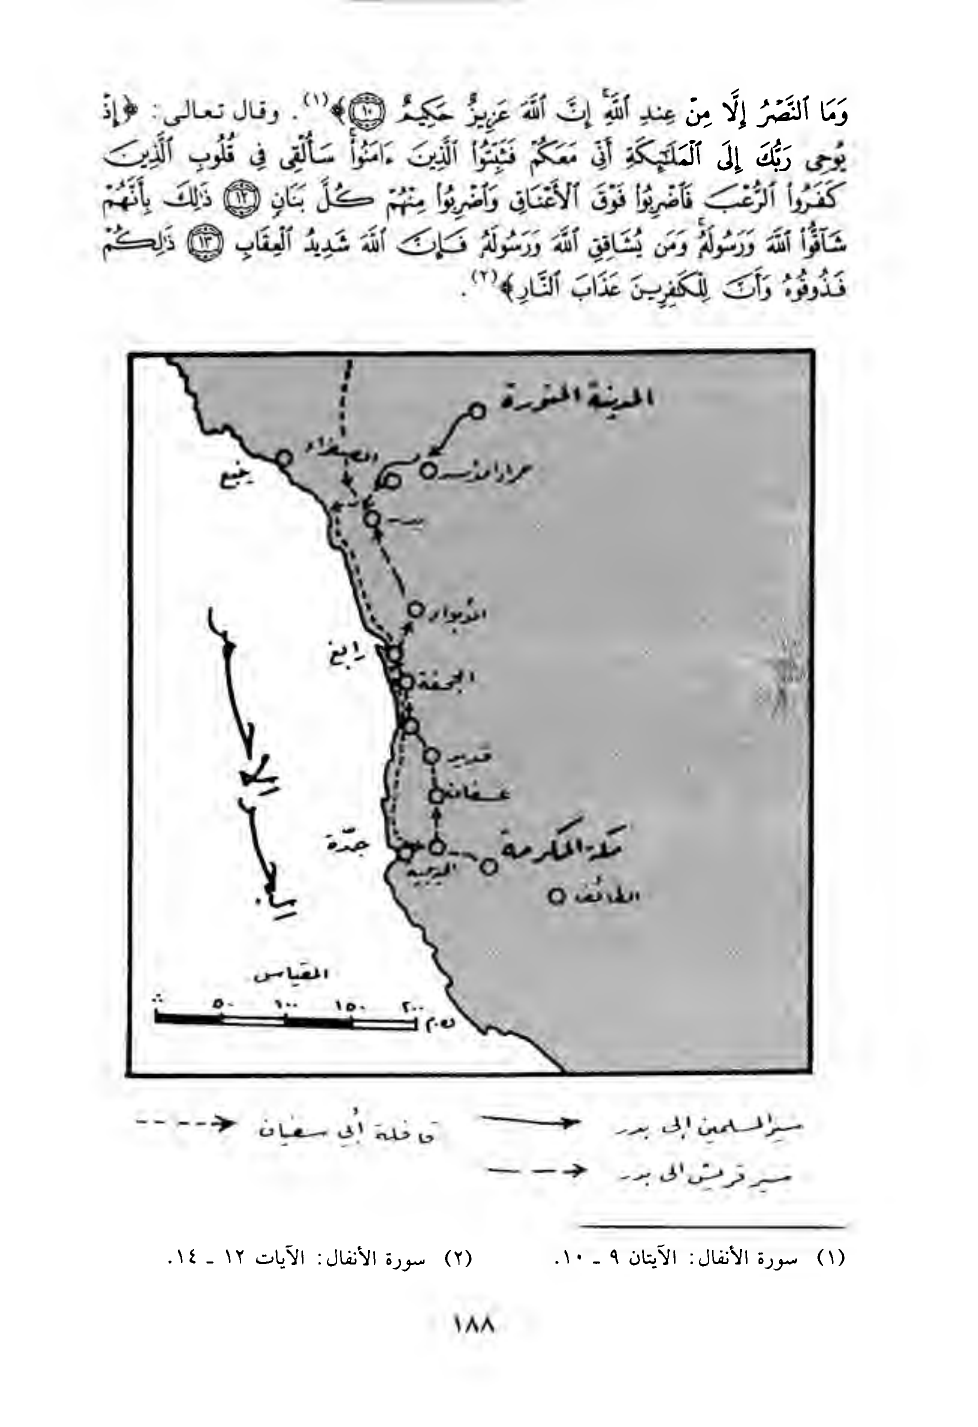 وَمَا ٱلنَّصْرُ إِلَّا مِنْ عِندِ ٱللَّهِ ۚ إِنَّ ٱللَّهَ عَزِيزٌ حَكِيمٌ ١٠﴾(١). وقال تعالى: ﴿إِذْ
يُوحِى رَبُّكَ إِلَى ٱلْمَلَـٰٓئِكَةِ أَنِّى مَعَكُمْ فَثَبِّتُوا۟ ٱلَّذِينَ ءَامَنُوا۟ ۚ سَأُلْقِى فِى قُلُوبِ ٱلَّذِينَ
كَفَرُوا۟ ٱلرُّعْبَ فَٱضْرِبُوا۟ فَوْقَ ٱلْأَعْنَاقِ وَٱضْرِبُوا۟ مِنْهُمْ كُلَّ بَنَانٍ ١٢ ذَٰلِكَ بِأَنَّهُمْ
شَآقُّوا۟ ٱللَّهَ وَرَسُولَهُۥ ۚ وَمَن يُشَاقِقِ ٱللَّهَ وَرَسُولَهُۥ فَإِنَّ ٱللَّهَ شَدِيدُ ٱلْعِقَابِ ١٣ ذَٰلِكُمْ
فَذُوقُوهُ وَأَنَّ لِلْكَـٰفِرِينَ عَذَابَ ٱلنَّارِ﴾(٢).
المدينة المنورة
الصفراء
ينبع
بدر
الأبواء
رابغ
الجحفة
قديد
عسفان
جدّة
مكة المكرمة
الطائف
البحر الأحمر
المقياس
٥٠ ١٠٠ ١٥٠ ٢٠٠
سير المسلمين إلى بدر
قافلة أبي سفيان
سير قريش الى بدر
(١) سورة الأنفال: الآيتان ٩ ـ ١٠.
(٢) سورة الأنفال: الآيات ١٢ ـ ١٤.
١٨٨